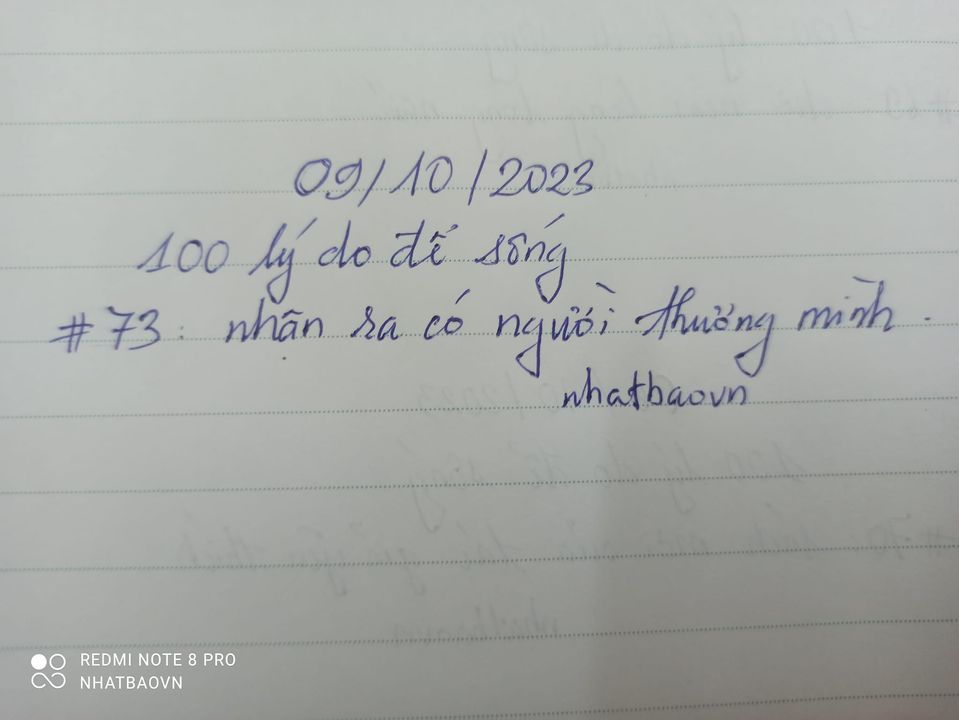 09/10/2023
100 lý do để sống
#73: nhận ra có người thương mình.
nhatbaovn
REDMI NOTE 8 PRO
NHATBAOVN